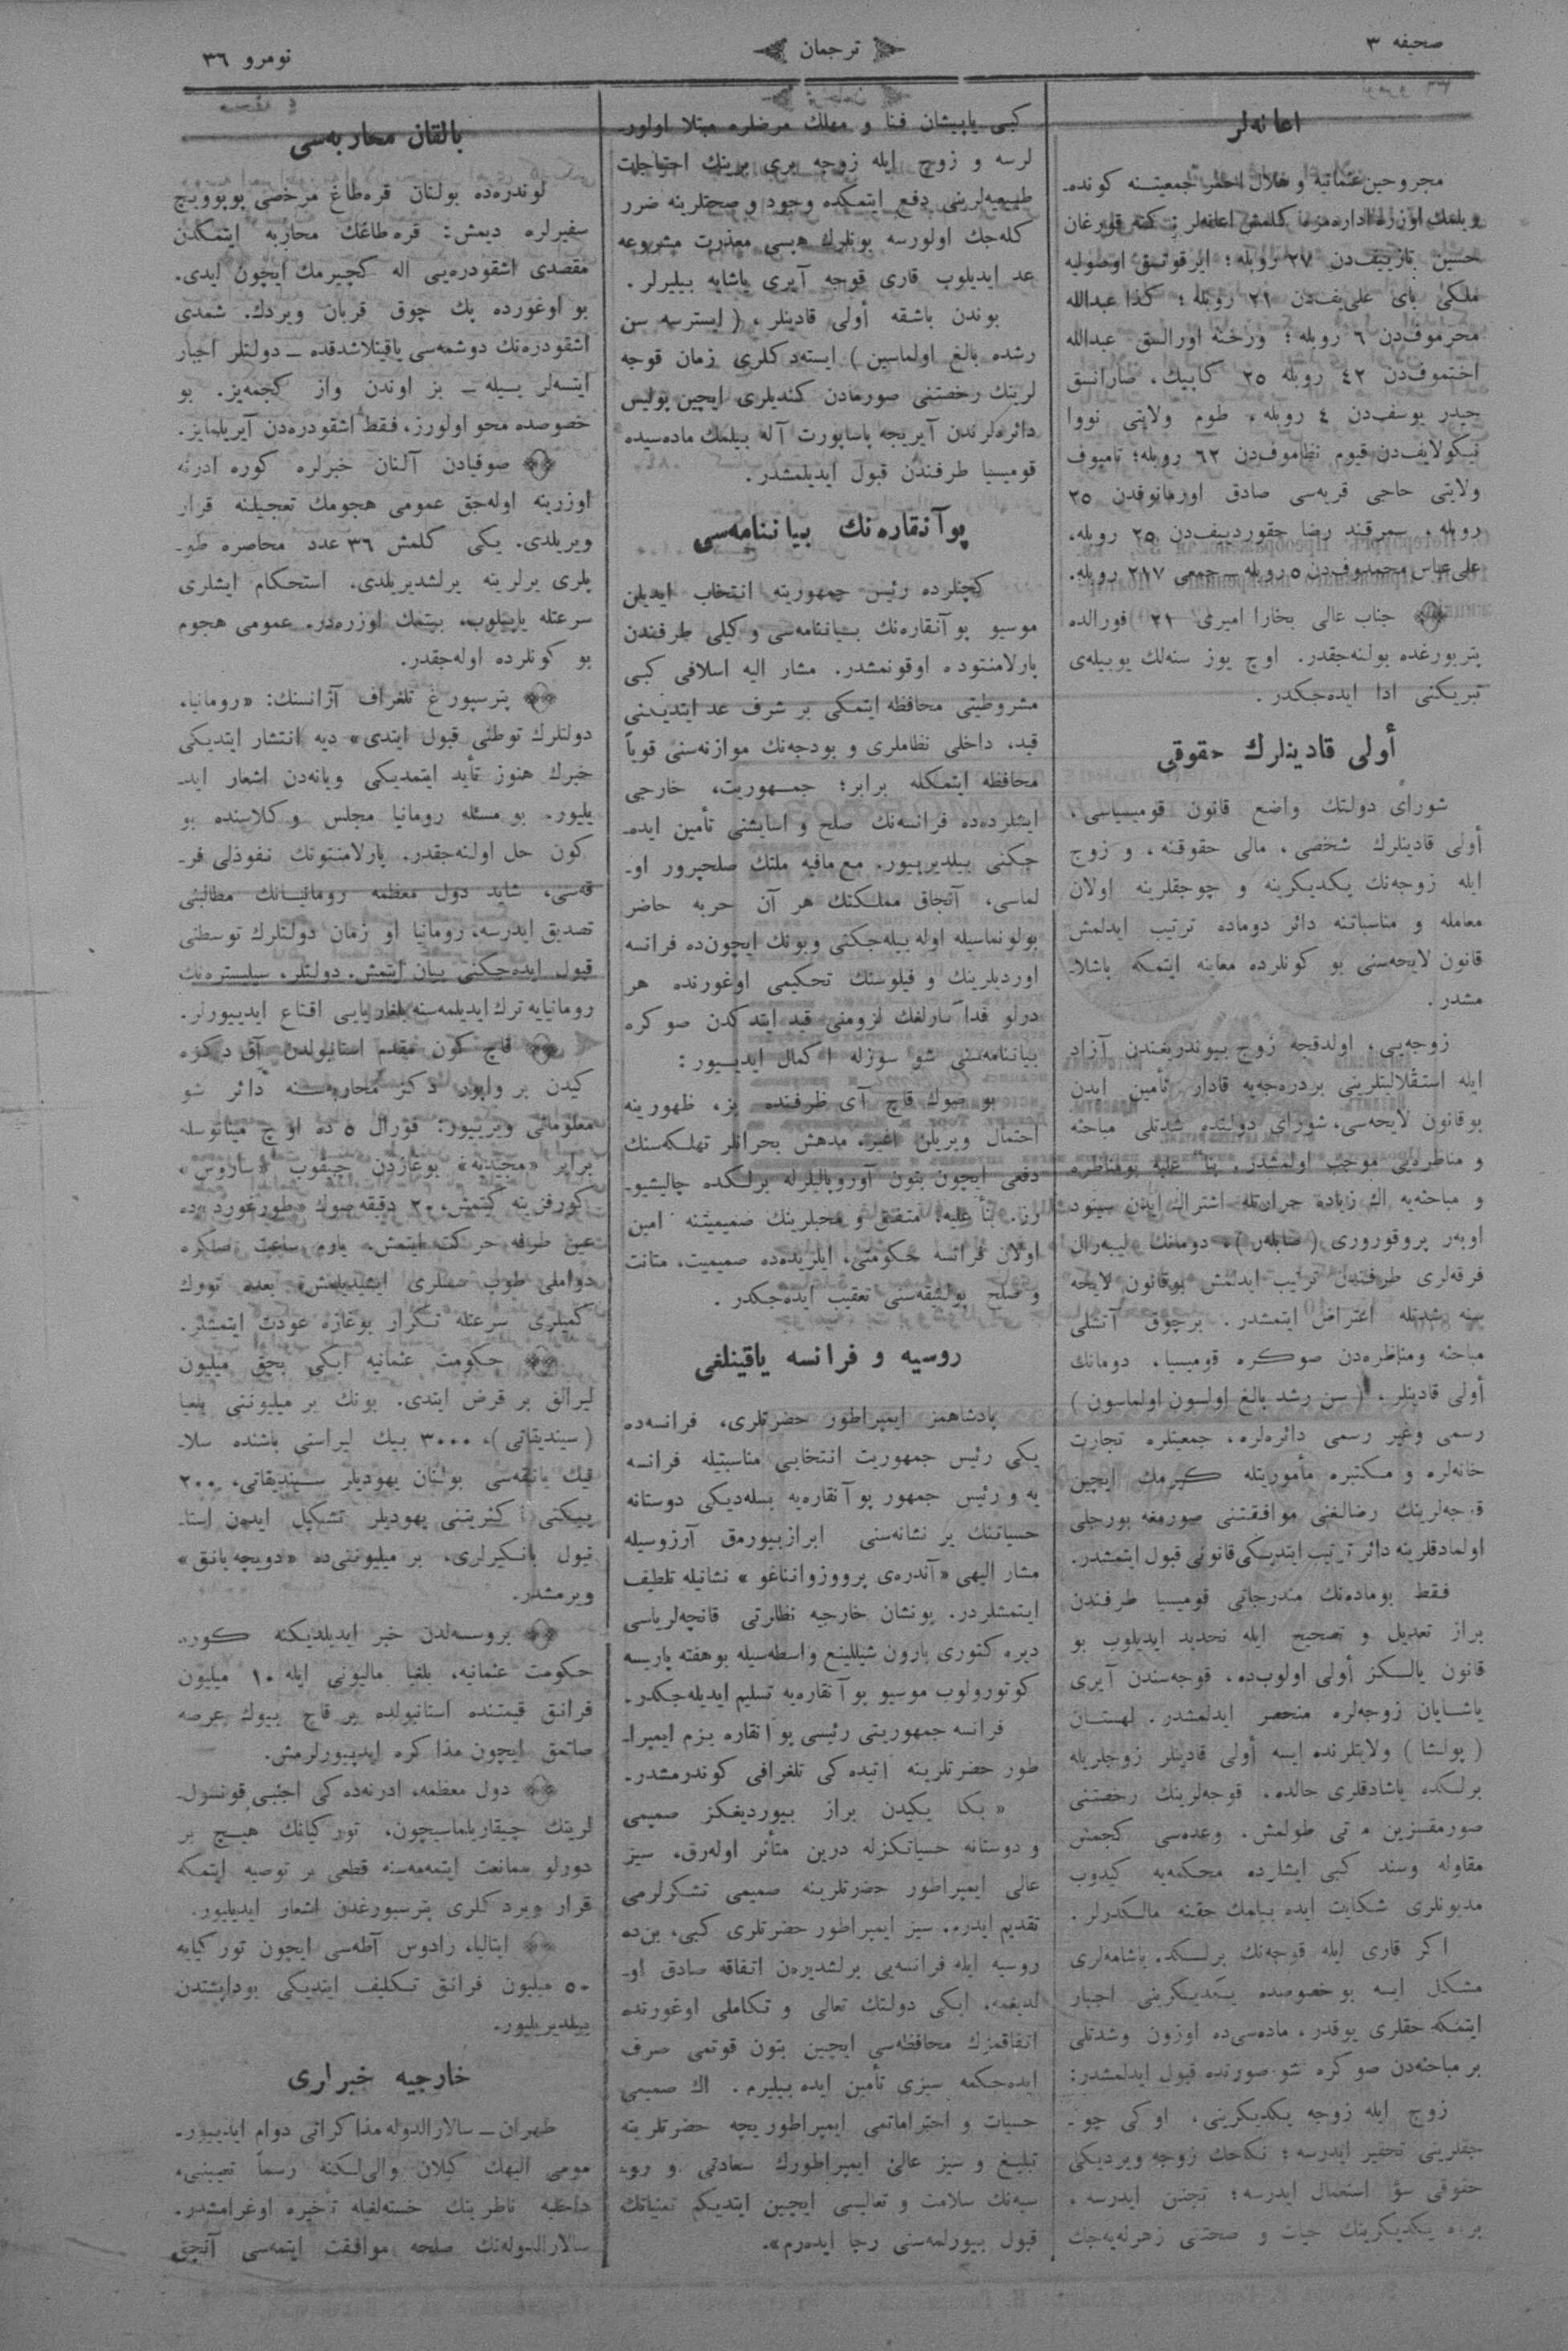 صحیفه ٣
ترجمان
نومرو ٣٦
اعانه‌لر
مجروحین عثمانیه و هلال احمر جمعیتـنه کونده‌ـ
ریلمك اوزره اداره‌مزه کلمش اعانه‌لر :
حسین دن ٢٧ روبله ؛
ملکی بای علی‌یف‌دن ٢١ روبله ؛ کذا عبدالله
محرموف‌دن ٦ روبله ؛ عبدالله
اختموف‌دن ٤٢ روبله ٢٥ کاپیك ،
حیدر یوسف‌دن ٤ روبله ، طوم ولایتی نووا
نیکولایف‌دن قیوم نظاموف‌دن ٦٢ روبله ؛ تامبوف
ولایتی حاجی قریه‌سی صادق ٢٥
روبله ، سمرقند رضا ٢٥ روبله ،
علی عباس محمدوف‌دن ٥ روبله ـ جمعی ٢١٧ روبله .
جناب عالی بخارا امیری ٢١ فورالده
پتربورغده بولنه‌جقدر . اوچ یوز سنه‌لك یوبیله‌ی
تبریکنی ادا ایده‌جکدر .
أولی قادینلرك حقوقی
شورای دولتك واضع قانون قومیسیاسی ،
أولی قادینلرك شخصی ، مالی حقوقنه ، و زوج
ایله زوجه‌نك یکدیکرینه و چوجقلرینه اولان
معامله و مناسباتنه دائر دوماده ترتیب ایدلمش
قانون لایحه‌سنی بو کونلرده معاینه ایتمکه باشلاـ
مشدر .
زوجه‌یی ، اولدقجه زوج بیوندریغندن آزاد
ایله استقلالیتلرینی بردرجه‌یه قادار تأمین ایدن
بوقانون لایحه‌سی ، شورای دولتده شدتلی مباحثه
و مناظره‌یی موجب اولمشدر . بناً علیه بومناظره
و مباحثه‌یه اك زیاده حرارتله اشتراك ایدن سینود
اوبەر پروقوروری ( صابلەر ) ، دومانك لیبه‌رال
فرقه‌لری طرفندن ترتیب ایدلمش بوقانون لایحه
سنه شدتله اعتراض ایتمشدر . برچوق آتشلی
مباحثه ومناظره‌دن صوکره قومیسیا ، دومانك
أولی قادینلر ، ( سن رشد بالغ اولسون اولماسون )
رسمی وغیر رسمی دائره‌لره ، جمعیتلره تجارت
خانه‌لره و مکتبره مأموریتله کیرمك ایچین
قوجه‌لرینك رضالغنی موافقتنی صورمغه بورجلی
اولمادقلرینه دائر ترتیب ایتدیکی قانونی قبول ایتمشدر .
فقط بوماده‌نك مندرجاتی قومیسیا طرفندن
براز تعدیل و تصحیح ایله تحدید ایدیلوب بو
قانون یالکز أولی اولوب‌ده ، قوجه‌سندن آیری
یاشایان زوجه‌لره منحصر ایدلمشدر . لهستان
( پولشا ) ولایتلرنده ایسه أولی قادینلر زوجلریله
برلکده یاشادقلری حالده ، قوجه‌لرینك رخصتنی
صورمقسزین طولمش ، وعده‌سی کچمش
مقاوله وسند کبی ایشلرده محکمه‌یه کیدوب
مدیونلری شکایت ایده بیلمك حقنه مالکدرلر .
اکر قاری ایله قوجه‌نك برلکده یاشامه‌لری
مشکل ایسه بو خصوصده یکدیکرینی اجبار
ایتمکه حقلری یوقدر ، ماده‌سی‌ده اوزون وشدتلی
بر مباحثه‌دن صوکره شو صورتده قبول ایدلمشدر :
زوج ایله زوجه یکدیکرینی ، اوکی چوـ
جقلرینی تحقیر ایدرسه ؛ نکاحك زوجه ویردیکی
حقوقی سؤ استعمال ایدرسه ؛ تجنن ایدرسه ،
یکدیکرینك حیات و صحتنی زهرله‌یه‌جك
کبی یاپیشان فنا و مهلك مرضلره مبتلا اولورـ
لرسه و زوج ایله زوجه بری برینك احتیاجات
طبیعیه‌لرینی دفع ایتمکده وجود و صحتلرینه ضرر
کله‌جك اولورسه بونلرك هپسی معذرت مشروعه
عد ایدیلوب قاری قوجه آیری یاشایه بیلیرلر .
بوندن باشقه أولی قادینلر ، ( ایسترسه سن
رشده بالغ اولماسین ) ایسته‌دکلری زمان قوجه
لرینك رخصتنی صورمادن کندیلری ایچین پولیس
دائره‌لرندن آیریجه پاساپورت آله بیلمك ماده‌سیده
قومیسیا طرفندن قبول ایدیلمشدر .
پوآنقاره‌نك بیاننامه‌سی
کچنلرده رئیس جمهوریته انتخاب ایدیلن
موسیو پوآنقاره‌نك بیاننامه‌سی وکیلی طرفندن
پارلامنتوده اوقونمشدر . مشار الیه اسلافی کبی
مشروطیتی محافظه ایتمکی بر شرف عد ایتدیکنی
قید ، داخلی نظاملری و بودجه‌نك موازنه‌سنی قویاً
محافظه ایتمکله برابر ؛ جمهوریت ، خارجی
ایشلرده‌ده فرانسه‌نك صلح و اسایشنی تأمین ایده‌ـ
جکنی بیلدیرییور . مع مافیه ملتك صلحپرور اوـ
لماسی ، آنجاق مملکتك هر آن حربه حاضر
بولونماسیله اوله بیله‌جکنی وبونك ایچون‌ده فرانسه
اوردیلرینك و فیلوسنك تحکیمی اوغورنده هر
درلو فدا کارلغك لزومنی قید ایتدکدن صوکره
بیاننامه‌سنی شو سوزله اکمال ایدییور :
بو صوك قاچ آی ظرفنده بز ، ظهورینه
احتمال ویریلن اغیر ، مدهش بحرانلر تهلکه‌سنك
دفعی ایچون بتون آوروپالیلرله برلکده چالیشیوـ
رز . بناً علیه ؛ متفق و محبلرینك صمیمیتنه امین
اولان فرانسه حکومتی ، ایلریده‌ده صمیمیت ، متانت
و صلح پولیتیقه‌سنی تعقیب ایده‌جکدر .
روسیه و فرانسه یاقینلغی
پادشاهمز ایمپراطور حضرتلری ، فرانسه‌ده
یکی رئیس جمهوریت انتخابی مناسبتیله فرانسه
یه و رئیس جمهور پوآنقاره‌یه بسله‌دیکی دوستانه
حسیاتنك بر نشانه‌سنی ابراز بیورمق آرزوسیله
مشار الیهی « آندره‌ی پرووزوانناغو » نشانیله تلطیف
ایتمشلردر . بونشان خارجیه نظارتی قانچه‌لریاسی
دیره کتوری بارون شیللینغ واسطه‌سیله بوهفته پاریسه
کوتورولوب موسیو پوآنقاره‌یه تسلیم ایدیله‌جکدر .
فرانسه جمهوریتی رئیسی پوآنقاره بزم ایمپراـ
طور حضرتلرینه آتیده کی تلغرافی کوندرمشدر .
« بکا یکیدن براز بیوردیغکز صمیمی
و دوستانه حسیاتکزله درین متأثر اوله‌رق ، سیز
عالی ایمپراطور حضرتلرینه صمیمی تشکرلرمی
تقدیم ایدرم . سیز ایمپراطور حضرتلری کبی ، بن‌ده
روسیه ایله فرانسه‌یی برلشدیره‌ن اتفاقه صادق اوـ
لدیغمه ، ایکی دولتك تعالی و تکاملی اوغورنده
اتفاقمزك محافظه‌سی ایچین بتون قوتمی صرف
ایده‌جکمه سیزی تأمین ایده بیلیرم . اك صمیمی
حسیات و احتراماتمی ایمپراطوریچه حضرتلرینه
تبلیغ و سیز عالی ایمپراطورك سعادتی و روـ
سیه‌نك سلامت و تعالیسی ایچین ایتدیکم تمنیاتك
قبول بیورلمه‌سنی رجا ایده‌رم » .
بالقان محاربه‌سی
لوندره‌ده بولنان قره‌طاغ مرخصی پوپوویچ
سفیرلره دیمش : قره‌طاغك محاربه ایتمکدن
مقصدی اشقودره‌یی اله کچیرمك ایچون ایدی .
بو اوغورده پك چوق قربان ویردك . شمدی
اشقودره‌نك دوشمه‌سی یاقینلاشدقده ـ دولتلر اجبار
ایتسه‌لر بیله ـ بز اوندن واز کچمه‌یز . بو
خصوصده محو اولورز ، فقط اشقودره‌دن آیریلمایز .
صوفیادن آلنان خبرلره کوره ادرنه
اوزرینه اوله‌جق عمومی هجومك تعجیلنه قرار
ویریلدی . یکی کلمش ٣٦ عدد محاصره طوـ
پلری یرلرینه یرلشدیریلدی . استحکام ایشلری
سرعتله یاپیلوب ، بیتمك اوزره‌در . عمومی هجوم
بو کونلرده اوله‌جقدر .
پترسپورغ تلغراف آژانسنك : « رومانیا ،
دولتلرك توطئی قبول ایتدی » دیه انتشار ایتدیکی
خبرك هنوز تأید ایتمدیکی ویانه‌دن اشعار ایدـ
یلیور . بو مسئله رومانیا مجلس وکلاسنده بو
کون حل اولنه‌جقدر . پارلامنتونك نفوذلی فرـ
قه‌سی ، شاید دول معظمه رومانیانك مطالبنی
تصدیق ایدرسه ، رومانیا او زمان دولتلرك توسطنی
قبول ایده‌جکنی بیان ایتمش . دولتلر ، سیلیستره‌نك
رومانیایه ترك ایدیلمه‌سنه بلغاریایی اقناع ایدییورلر .
قاچ کون مقدم استانبولدن آق دکزه
کیدن بر واپور دکز محاربه‌سنه دائر شو
معلوماتی ویرییور : فورال ٥ ده اوچ مینانوسله
برابر « مجیدیه » بوغازدن چیقوب « ساروس »
کورفزینه کتمش ، ٢٠ دقیقه صوك « طورغورد » ده
عین طرفه حرکت ایتمش . یارم ساعت صکره
دواملی طوپ سسلری ایشیدیلمش ، بعده تورك
کمیلری سرعتله تکرار بوغازه عودت ایتمشلر .
حکومت عثمانیه ایکی بچق میلیون
لیرالق بر قرض ایتدی . بونك بر میلیوننی بلغیا
( سیندیقاتی ) ، ٣٠٠٠ بیك لیراسنی باشنده سلاـ
نیك بانقه‌سی بولنان یهودیلر سیندیقاتی ، ٢٠٠
بیکنی اکثریتنی یهودیلر تشکیل ایدن استاـ
نبول بانکیرلری ، بر میلیوننی‌ده « دویچه بانق »
ویرمشدر .
بروسه‌لدن خبر ایدیلدیکنه کوره
حکومت عثمانیه ، بلغیا مالیونی ایله ١٠ میلیون
فرانق قیمتنده استانبولده بر قاچ بیوك عرصه
صاتمق ایچون مذاکره ایدییورلرمش .
دول معظمه ، ادرنه‌ده کی اجنبی قونسولـ
لرینك چیقاریلماسیچون ، تورکیانك هیچ بر
دورلو ممانعت ایتمه‌مه‌سنه قطعی بر توصیه ایتمکه
قرار ویردکلری پترسبورغدن اشعار ایدیلیور .
ایتالیا ، رادوس آطه‌سی ایچون تورکیایه
٥٠ میلیون فرانق تکلیف ایتدیکی بوداپشتدن
بیلدیریلیور .
خارجیه خبرلری
طهران ـ سالارالدوله مذاکراتی دوام ایدییورـ
مومی الیهك کیلان والی‌لکنه رسماً تعیینی ،
داخلیه ناظرینك خسته‌لغیله تأخیره اوغرامشدر .
سالارالدوله‌نك صلحه موافقت ایتمه‌سی آنجق